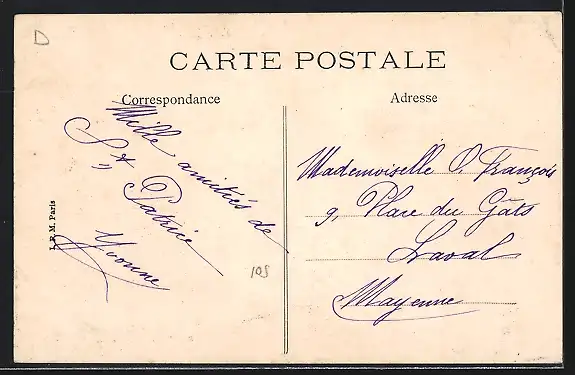 D
CARTE POSTALE
Correspondance
Adresse
Mille amitiés de
St Patrice
Yvonne
Mademoiselle O. François
9, Place du Gâts
Laval
Mayenne
105
Paris